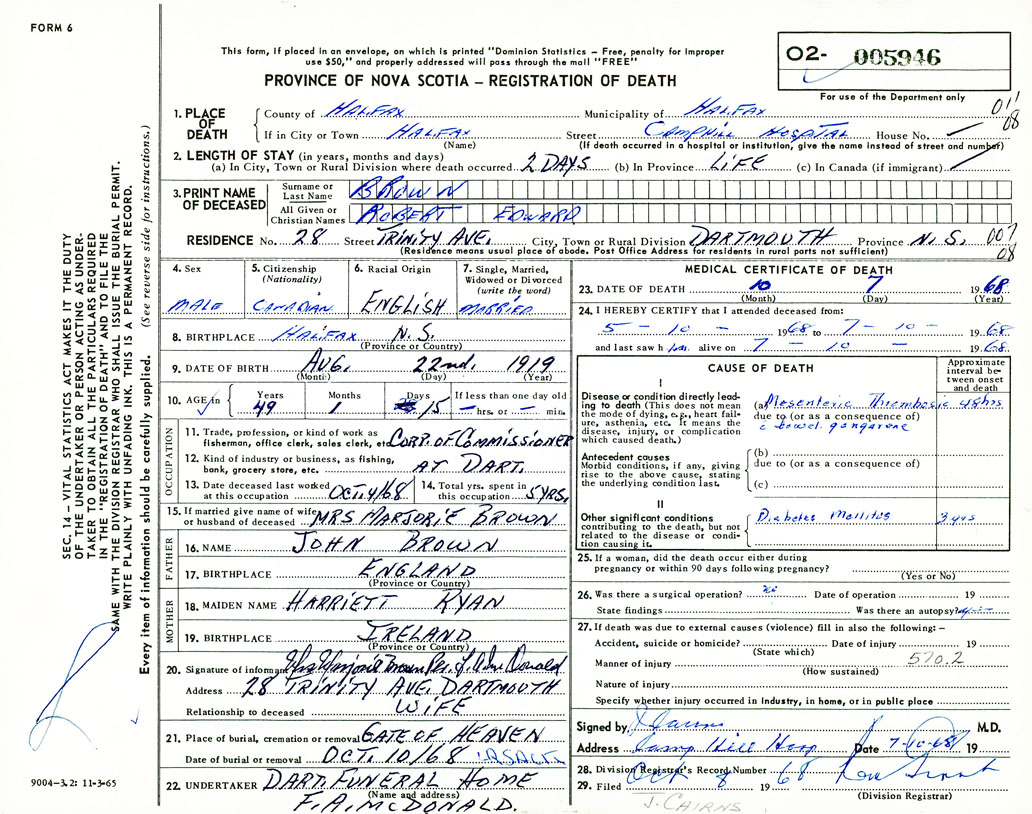 FORM 6
This form, if placed in an envelope, on which is printed "Dominion Statistics – Free, penalty for improper
use $50," and properly addressed will pass through the mail "FREE"
PROVINCE OF NOVA SCOTIA – REGISTRATION OF DEATH
O2- 005946
For use of the Department only
011
08
1. PLACE OF DEATH
County of HALIFAX Municipality of HALIFAX
If in City or Town HALIFAX Street CAMPHILL HOSPITAL House No. —
(Name) (If death occurred in a hospital or institution, give the name instead of street and number)
2. LENGTH OF STAY (in years, months and days)
(a) In City, Town or Rural Division where death occurred 2 DAYS (b) In Province LIFE (c) In Canada (if immigrant) —
3. PRINT NAME OF DECEASED
Surname or Last Name BROWN
All Given or Christian Names ROBERT EDWARD
RESIDENCE No. 28 Street TRINITY AVE. City, Town or Rural Division DARTMOUTH Province N.S. 007
08
(Residence means usual place of abode. Post Office Address for residents in rural parts not sufficient)
4. Sex MALE
5. Citizenship (Nationality) CANADIAN
6. Racial Origin ENGLISH
7. Single, Married, Widowed or Divorced (write the word) MARRIED
8. BIRTHPLACE HALIFAX N.S.
(Province or Country)
9. DATE OF BIRTH AUG. 22nd. 1919
(Month) (Day) (Year)
10. AGE in Years 49 Months 1 Days 15 If less than one day old — hrs. or — min.
OCCUPATION
11. Trade, profession, or kind of work as fisherman, office clerk, sales clerk, etc. CORP. OF COMMISSIONER
12. Kind of industry or business, as fishing, bank, grocery store, etc. AT DART.
13. Date deceased last worked at this occupation OCT. 4/68
14. Total yrs. spent in this occupation 5 YRS.
15. If married give name of wife or husband of deceased MRS MARJORIE BROWN
FATHER
16. NAME JOHN BROWN
17. BIRTHPLACE ENGLAND
(Province or Country)
MOTHER
18. MAIDEN NAME HARRIETT RYAN
19. BIRTHPLACE IRELAND
(Province or Country)
20. Signature of informant Mrs Marjorie Brown Per.
Address 28 TRINITY AVE. DARTMOUTH
Relationship to deceased WIFE
21. Place of burial, cremation or removal GATE OF HEAVEN
Date of burial or removal OCT. 10/68
22. UNDERTAKER DART. FUNERAL HOME
(Name and address)
F.A. MCDONALD.
MEDICAL CERTIFICATE OF DEATH
23. DATE OF DEATH 10 7 1968
(Month) (Day) (Year)
24. I HEREBY CERTIFY that I attended deceased from:
5 – 10 – 1968 to 7 – 10 – 1968
and last saw him alive on 7 – 10 – 1968
CAUSE OF DEATH
Approximate interval between onset and death
I
Disease or condition directly leading to death (This does not mean the mode of dying, e.g., heart failure, asthenia, etc. It means the disease, injury, or complication which caused death.)
(a) Mesenteric Thrombosis 48 hrs
due to (or as a consequence of)
c bowel gangrene
Antecedent causes
Morbid conditions, if any, giving rise to the above cause, stating the underlying condition last.
(b)
due to (or as a consequence of)
(c)
II
Other significant conditions contributing to the death, but not related to the disease or condition causing it.
Diabetes Mellitus 3 yrs
25. If a woman, did the death occur either during pregnancy or within 90 days following pregnancy?
(Yes or No)
26. Was there a surgical operation? Date of operation 19
State findings Was there an autopsy?
27. If death was due to external causes (violence) fill in also the following: –
Accident, suicide or homicide? Date of injury 19
(State which)
Manner of injury 570.2
(How sustained)
Nature of injury
Specify whether injury occurred in industry, in home, or in public place
Signed by J Cairns M.D.
Address Camp Hill Hosp Date 7-10-68 19
28. Division Registrar's Record Number
29. Filed Oct 8 1968
(Division Registrar)
J. CAIRNS
SEC. 14 – VITAL STATISTICS ACT MAKES IT THE DUTY
OF THE UNDERTAKER OR PERSON ACTING AS UNDER-
TAKER TO OBTAIN ALL THE PARTICULARS REQUIRED
IN THE "REGISTRATION OF DEATH" AND TO FILE THE
SAME WITH THE DIVISION REGISTRAR WHO SHALL ISSUE THE BURIAL PERMIT.
WRITE PLAINLY WITH UNFADING INK. THIS IS A PERMANENT RECORD.
Every item of information should be carefully supplied. (See reverse side for instructions.)
9004–3.2: 11-3-65